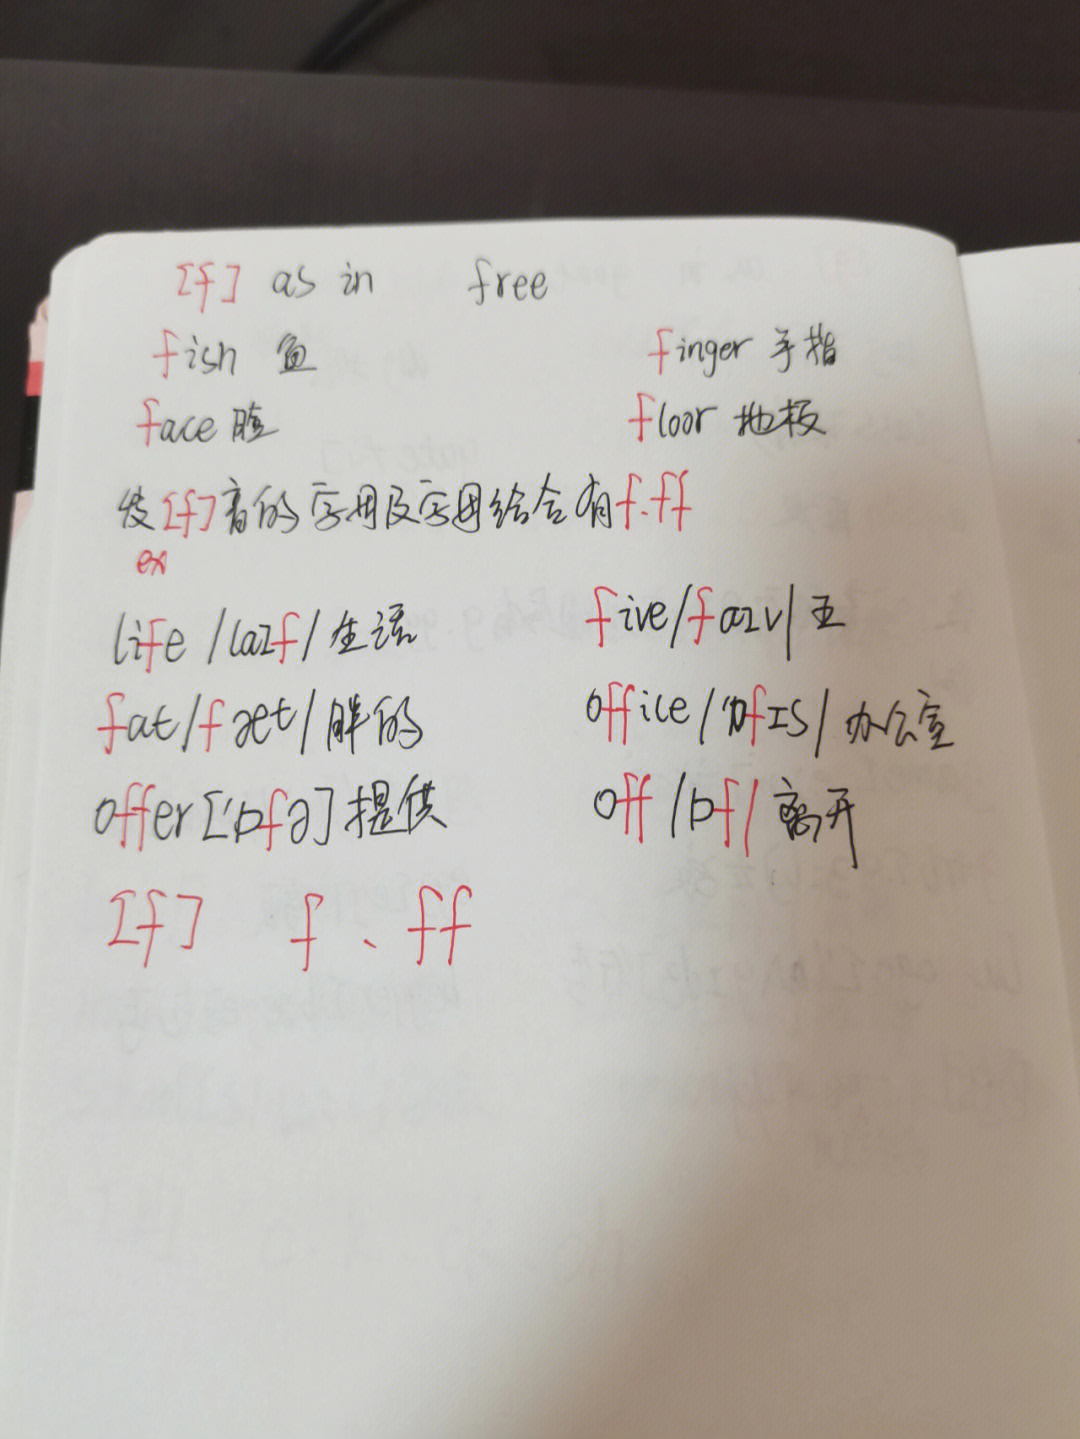 [f] as in free
fish 鱼 finger 手指
face 脸 floor 地板
发[f]音的字母及字母结合有f.ff
ex
life /laɪf/ 生活 five/faɪv/五
fat/fæt/胖的 office/'ɒfɪs/办公室
offer['ɒfə]提供 off /ɒf/ 离开
[f] f、ff